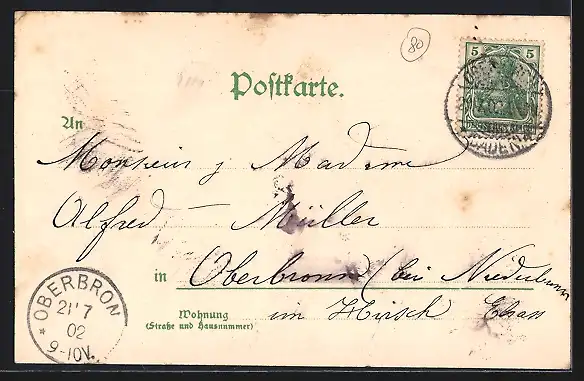 80
Postkarte.
5 5
DEUTSCHES REICH
BADEN
An
Monsieur & Madame
Alfred — Müller
in Oberbronn (bei Niederbronn
Wohnung
(Straße und Hausnummer)
im Hirsch Elsass
* OBERBRONN
21 7
02
9-10V.